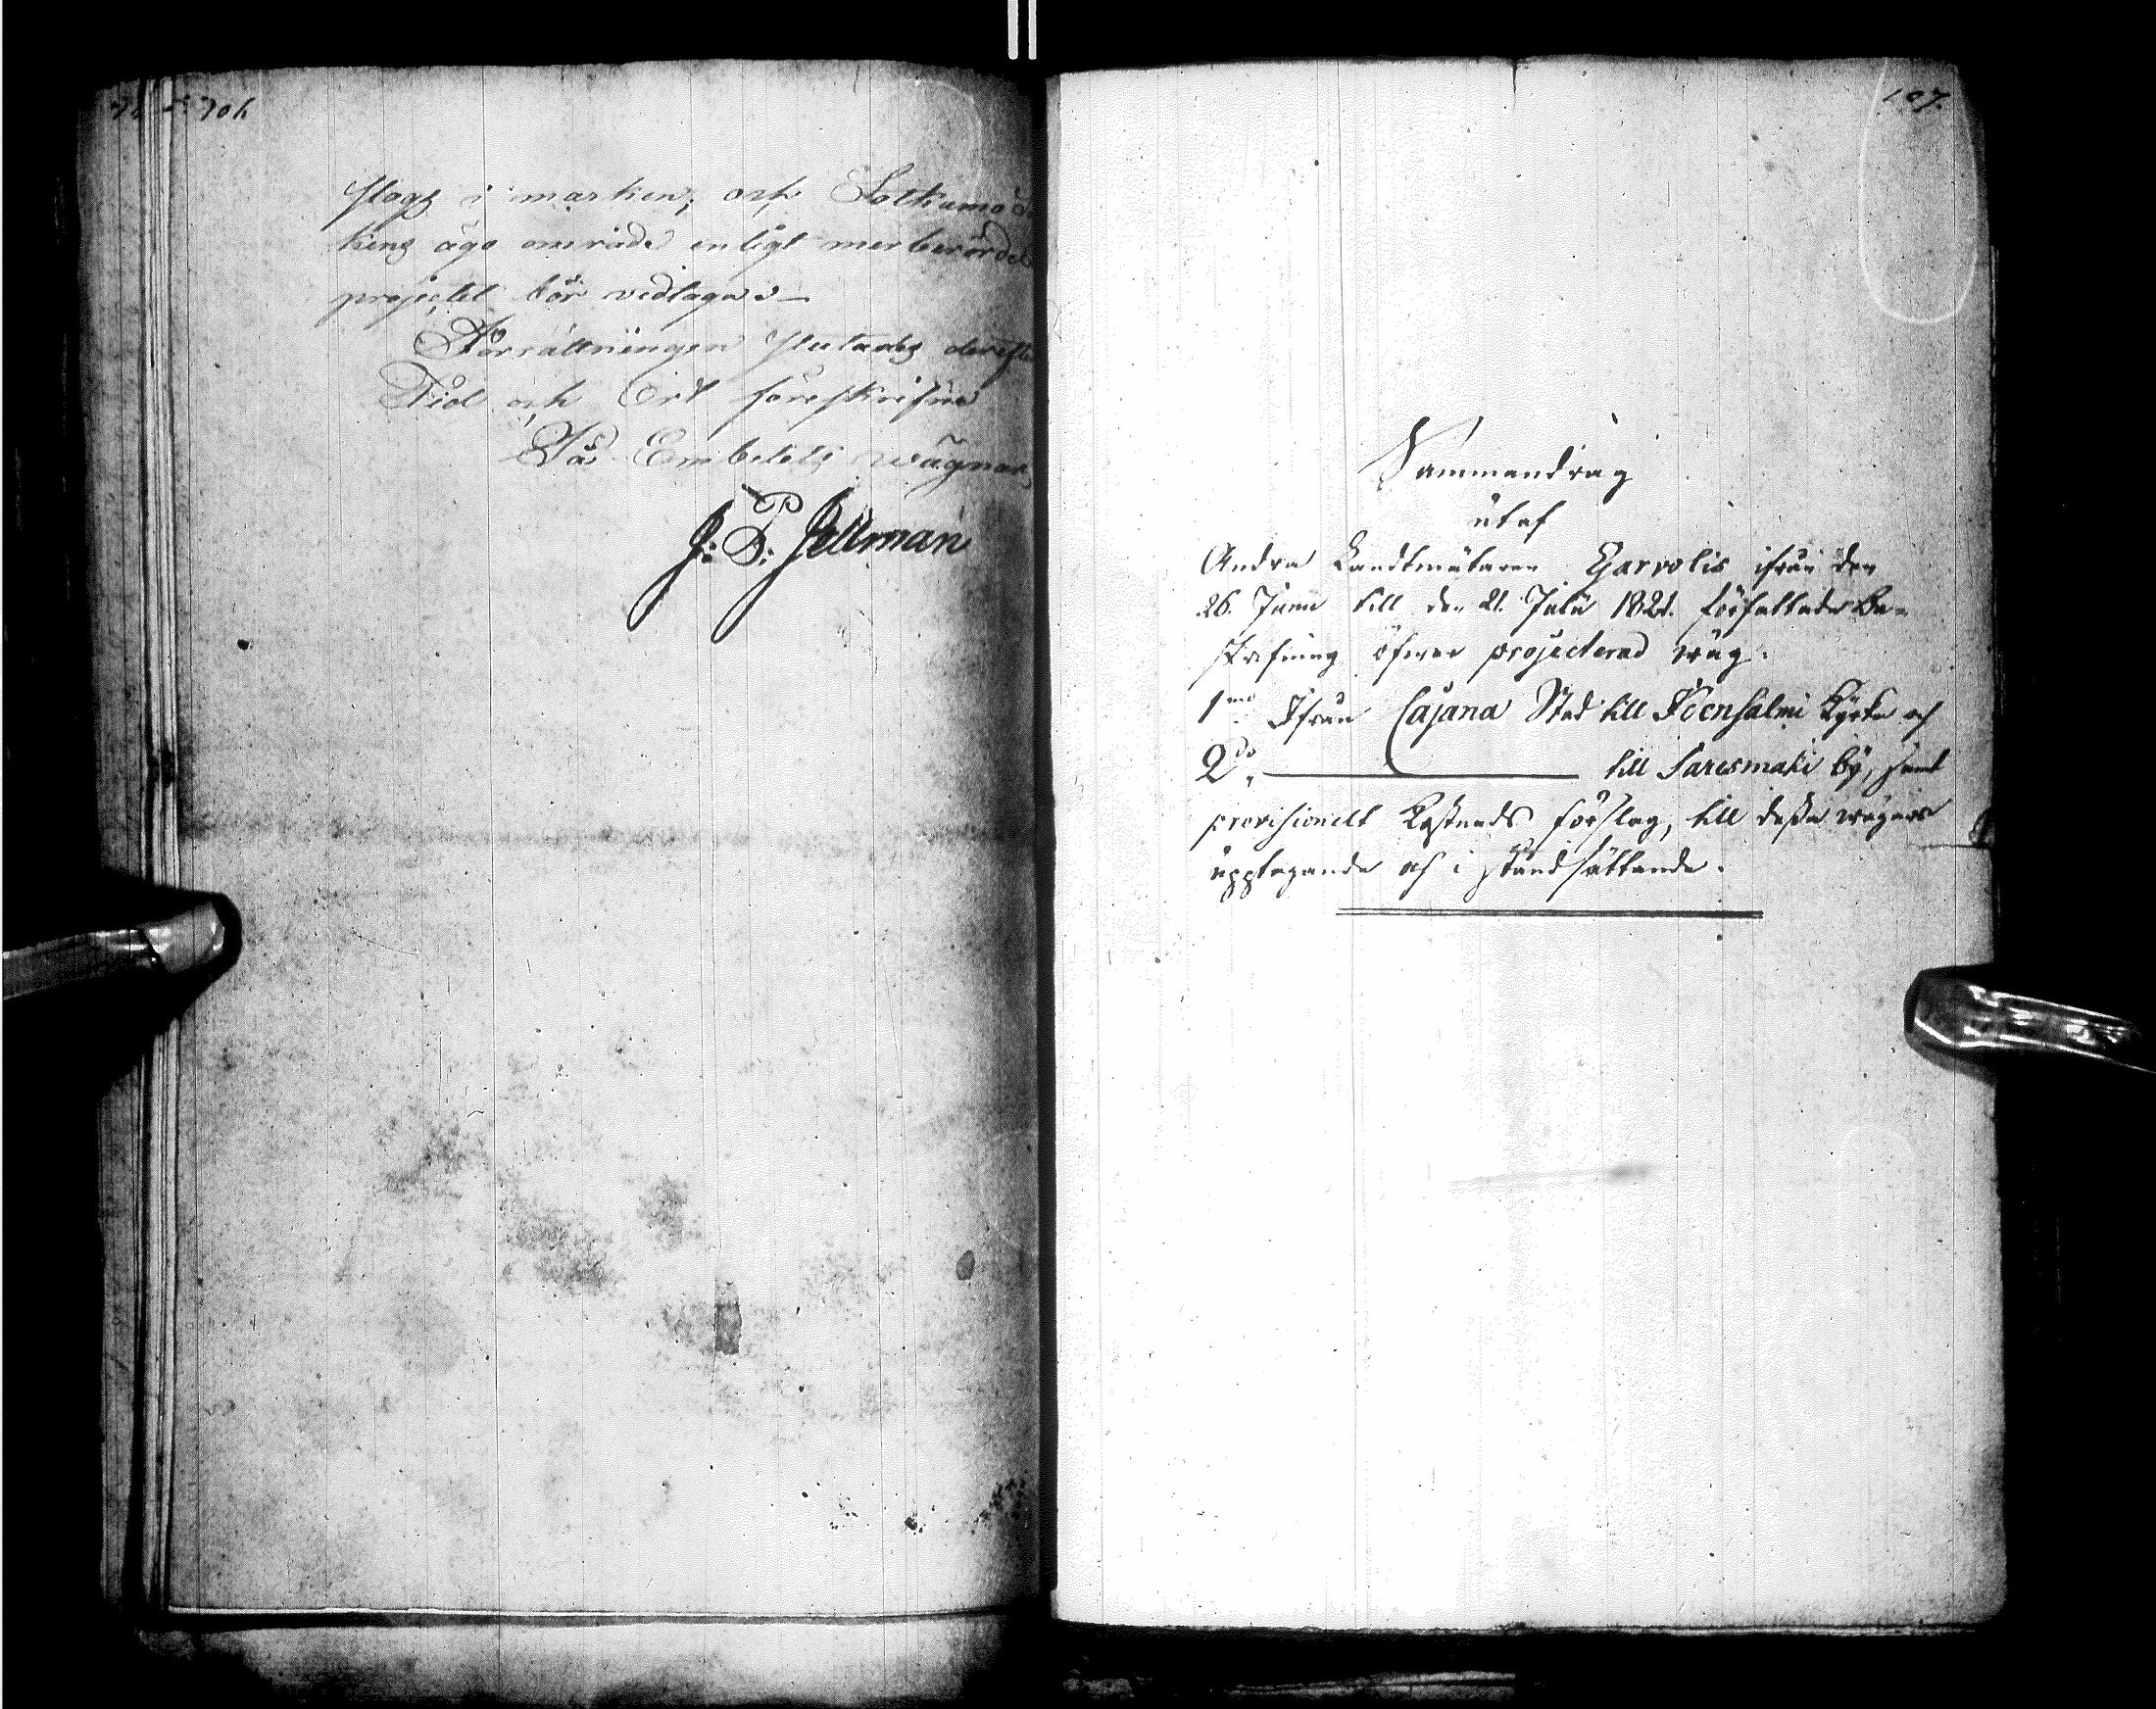 706
slags i marken, och Sotkamo
kens ägo område enligt merberörde
projectet bör vidtagas
Förrättningen slutades derefter
Tid och Ort föreskrifne
På Embetets wägnar,
J: P: Jellman
107.
Sammandrag
utaf
Andra Landtmätaren Carvolis ifrån den
26. Junii till den 21. Julii 1821. författade Be-
skrifning öfver projecterad wäg.
1mo Ifrån Cajana Stad till Idensalmi Kyrka och
2do till Saresmäki by, samt
provisionelt Kostnads förslag, till dessa wägars
upptagande och i ståndsättande.